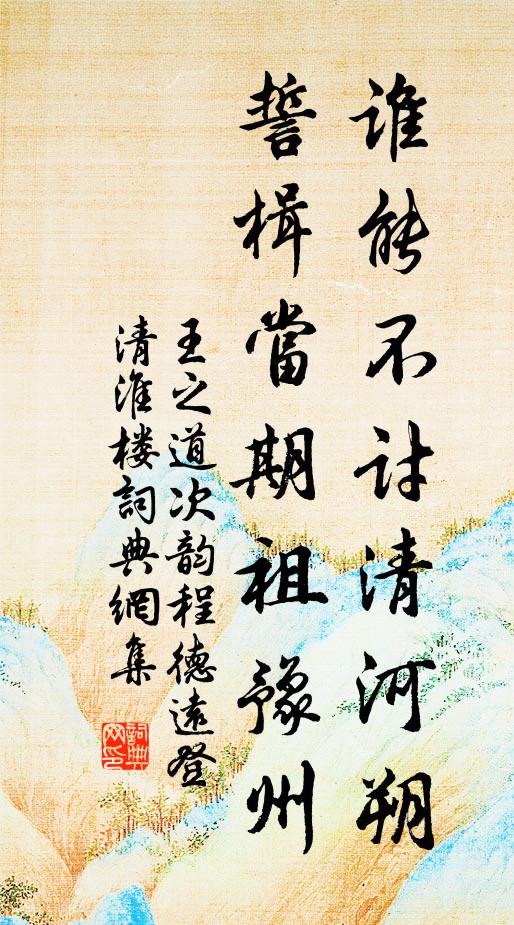 谁能不计清河朔
誓楫當期祖豫州
王之道次韵程德遠登
清淮楼詞典網集
詞典网印